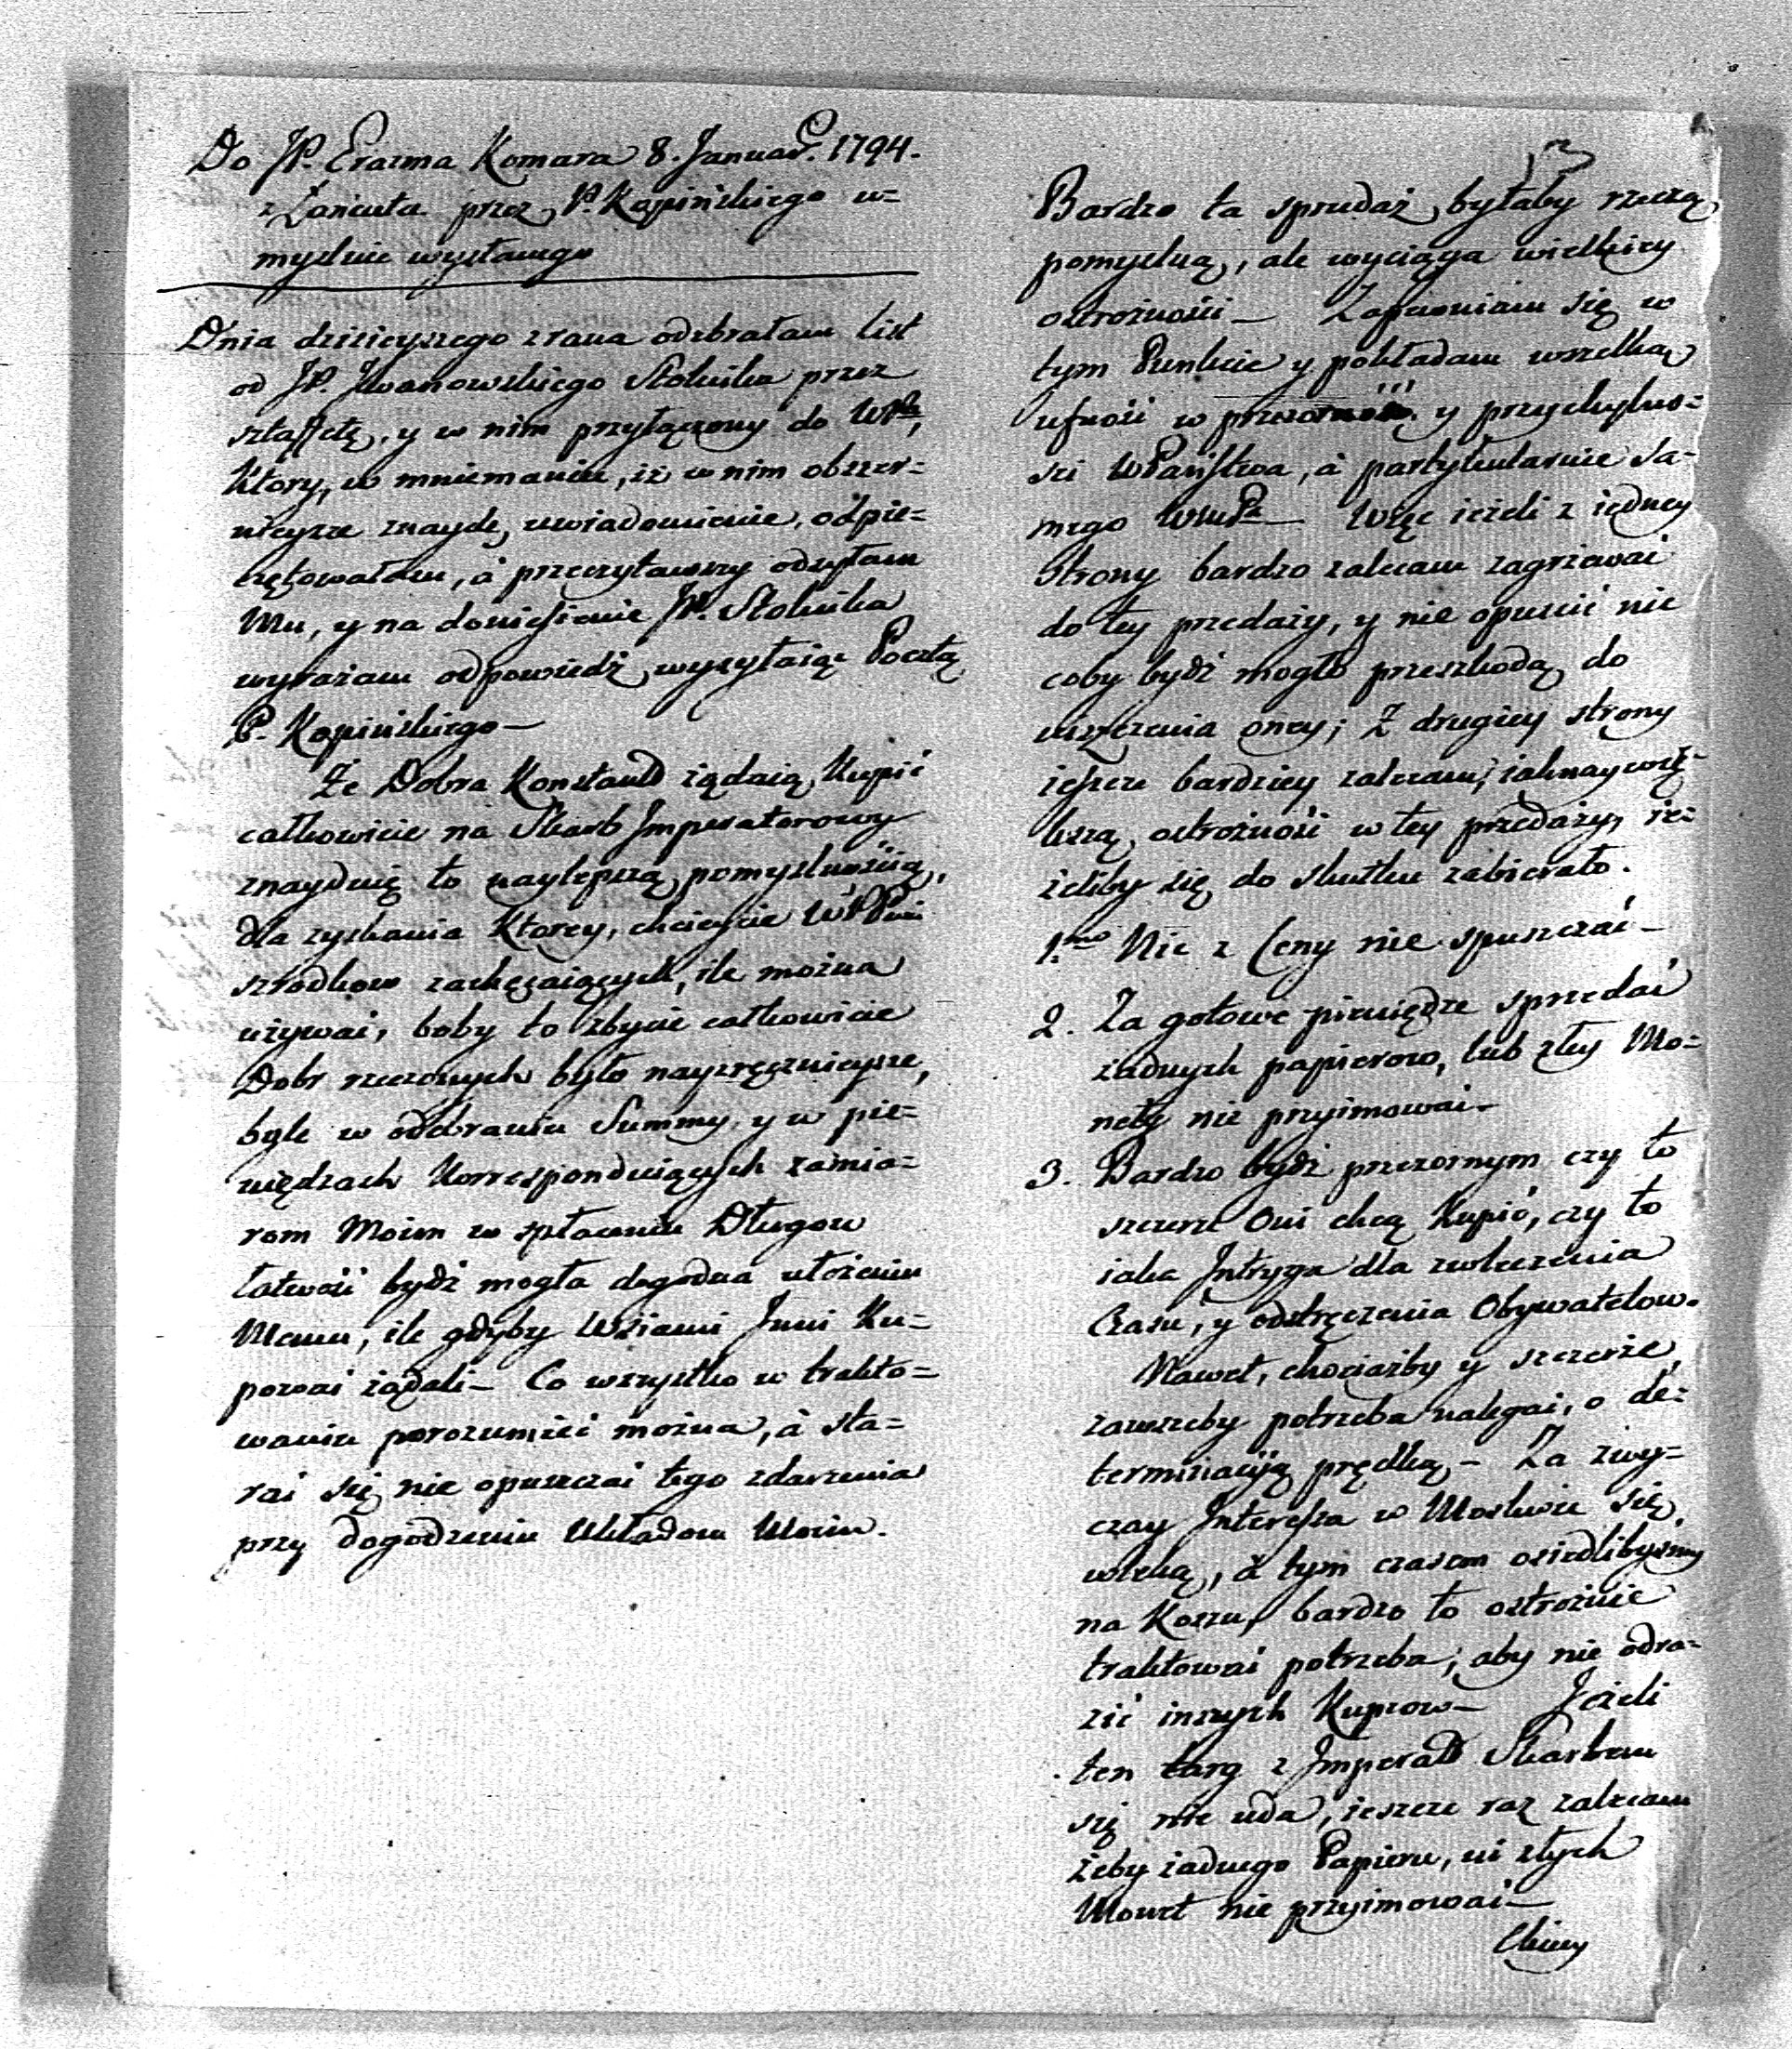 Do JP. Erazma Komara 8. Januar. 1794.
z Łancuta przez P. Kopińskiego u=
myslnie wysłanego
Dnia dzisieyszego z rana odebrałam list
od JP. Jwanowskiego Stolnika przez
sztaffetę, y w nim przyłączony do WPa,
Ktory, w mniemaniu, iż w nim obszer=
nieysze znaydę uwiadomienie, odpie=
czętowałam, á przeczytawszy odsyłam
Mu, y na doniesienie JP. Stolnika
wyrażam odpowiedź wysyłaiąc Pocztą
P. Kopińskiego —
Że Dobra Konstant żądaią Kupić
całkowicie na Skarb Jmperatorowy
znayduię to naylepszą pomyslnością,
dla zyskania Ktorey, chcieycie WPPni
szrodkow zachęcaiących, ile można
używać, boby to zbycie całkowicie
Dobr rzeczonych było nayzręcznieysze,
byle w odebraniu Summy, y w pie=
niędzach Korrespenduiących zamia=
rom Moim w spłaceniu Długow
łatwość bydź mogła dogodna ułożeniu
Memu, ile gdyby Wsiami Jnni Ku=
pować żądali — Co wszystko w trakto=
waniu porozumieć można, á sta=
rać się nie opuszczać tego zdarzenia
przy dogodzeniu Układom Moim.
Bardzo ta sprzedaż byłaby rzeczą
pomyslną, ale wyciąga wielkiey
ostrożności — Zapewniam się w
tym Punkcie y pokładam wszelką
ufność w przezorności y przychylno=
sci WPaństwa, á partykularnie Sa=
mego WmPa — Więc ieżeli z iedney
Strony bardzo zalecam zagrzewać
do tey przedaży, y nie opuścić nic
coby bydź mogło przeszkodą do
uiszczenia oney; Z drugiey strony
ieszcze bardziey zalecam, iaknaywię=
kszą ostrożność w tey przedaży, ie=
żeliby się do skutku zabierało.
1mo Nic z Ceny nie spuszczać —
2. Za gotowe pieniędze sprzedać
żadnych papierow, lub złey Mo=
nety nie przyimować —
3. Bardzo bydź przezornym czy to
szczerze Oni chcą Kupić, czy to
iaka Jntryga dla zwleczenia
Czasu, y odstręczenia Obywatelow.
Nawet, chociażby y szczerze,
zawszeby potrzeba nalegać, o de=
terminacyją prędką — Za zwy=
czay Jnteressa w Moskwie się
wleką, á tym czasem osiedlibysmy
na Koszu, bardzo to ostrożnie
traktować potrzeba, aby nie odra=
zić innych Kupcow — Jeżeli
ten targ z Jmperat Skarbem
się nie uda, ieszcze raz zalecam
żeby żadnego Papieru, ni złych
Monet nie przyimować —